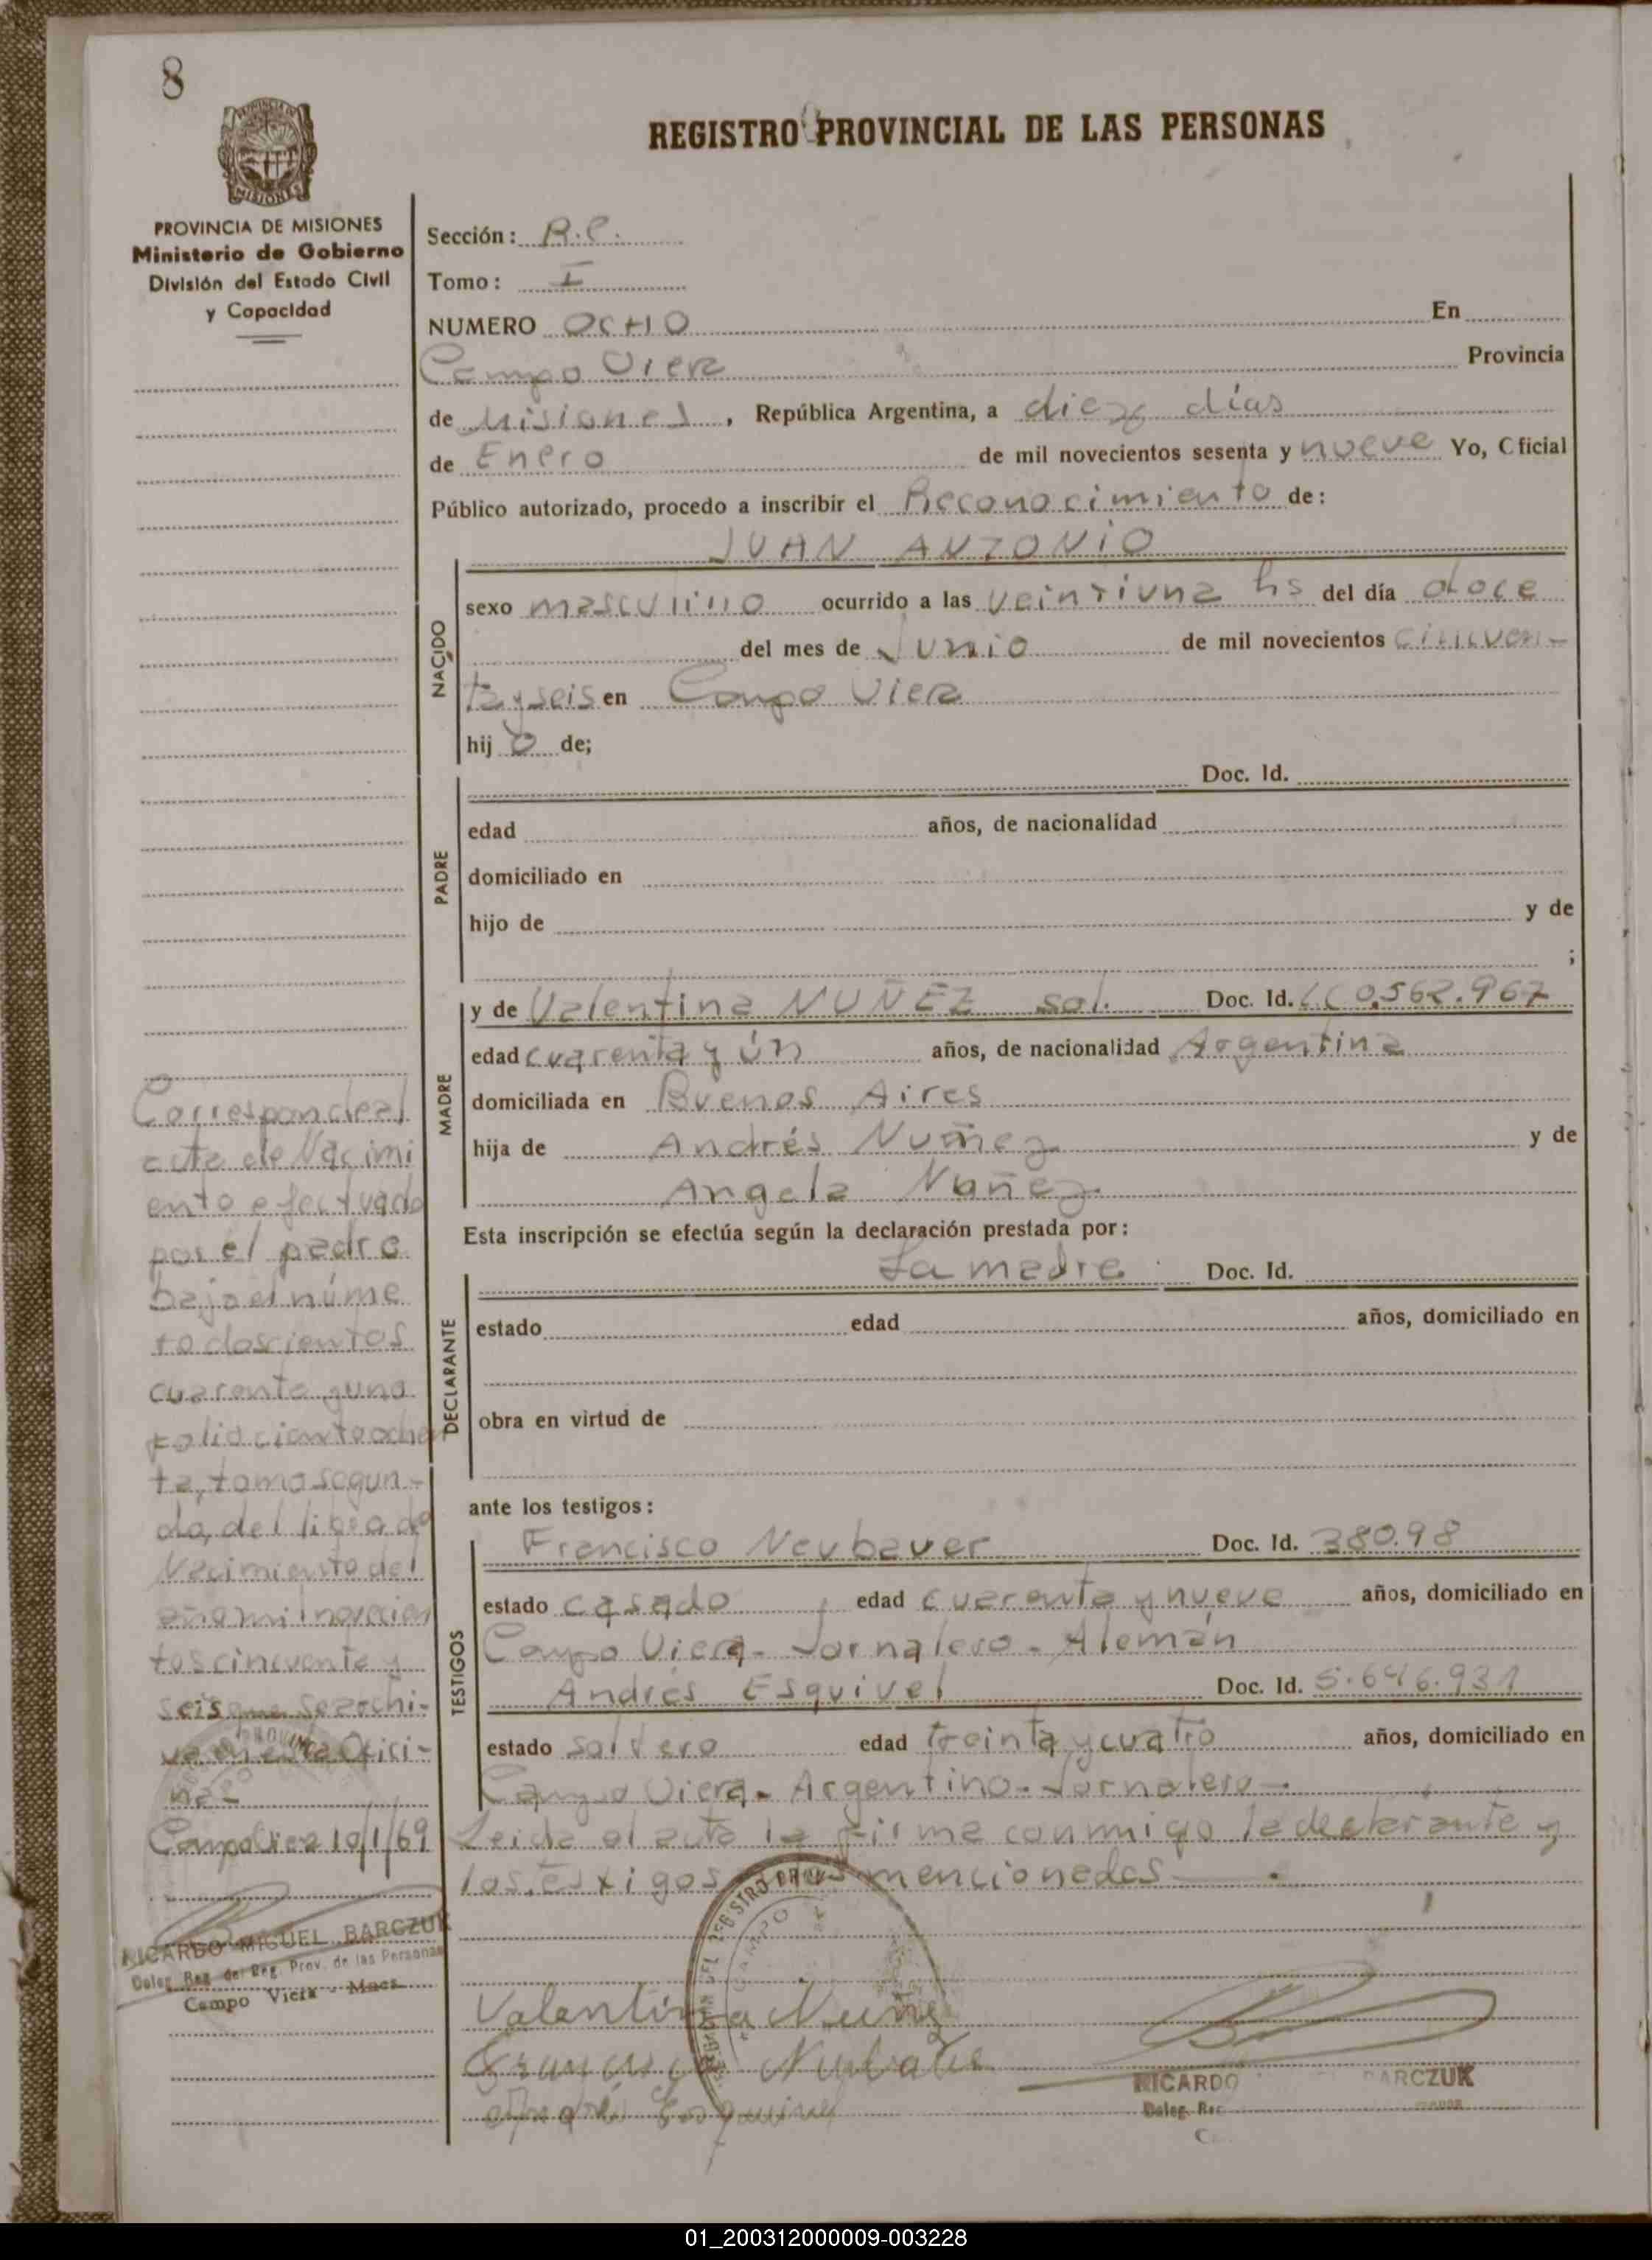 8
REGISTRO PROVINCIAL DE LAS PERSONAS
PROVINCIA DE MISIONES
Ministerio de Gobierno
División del Estado Civil
y Capacidad
Sección: R.C.
Tomo: I
NUMERO OCHO En
Campo Viera Provincia
de Misiones, República Argentina, a diez días
de Enero de mil novecientos sesenta y nueve Yo, Oficial
Público autorizado, procedo a inscribir el Reconocimiento de:
JUAN ANTONIO
NACIDO
sexo masculino ocurrido a las veintiuna hs del día doce
del mes de Junio de mil novecientos cincuen-
ta y seis en Campo Viera
hijo de;
PADRE
Doc. Id.
edad años, de nacionalidad
domiciliado en
hijo de y de
;
MADRE
y de Valentina NUÑEZ sol. Doc. Id. LC 0.562.967
edad cuarenta y ún años, de nacionalidad Argentina
domiciliada en Buenos Aires
hija de Andrés Nuñez y de
Angela Nuñez
Esta inscripción se efectúa según la declaración prestada por:
DECLARANTE
La madre Doc. Id.
estado edad años, domiciliado en
obra en virtud de
ante los testigos:
TESTIGOS
Francisco Neubauer Doc. Id. 38098
estado casado edad cuarenta y nueve años, domiciliado en
Campo Viera - Jornalero - Alemán
Andrés Esquivel Doc. Id. 5.646.931
estado soltero edad treinta y cuatro años, domiciliado en
Campo Viera - Argentino - Jornalero -.
Leida el acta la firma conmigo la declarante y
los testigos mencionados
Valentina Nuñez
Andrés Esquivel
RICARDO BARCZUK
Deleg. Reg.
Corresponde al
acta de Nacimi
ento efectuado
por el padre
bajo el núme
ro doscientos
cuarenta y uno
folio ciento ochen
ta, tomo segun-
do, del libro de
Nacimiento del
año mil novecien
tos cincuenta y
seis que se archi-
va en esta Ofici-
na -
Campo Viera 10/1/69
RICARDO MIGUEL BARCZUK
Deleg. Reg. del Reg. Prov. de las Personas
Campo Viera - Mnes.
01_200312000009-003228